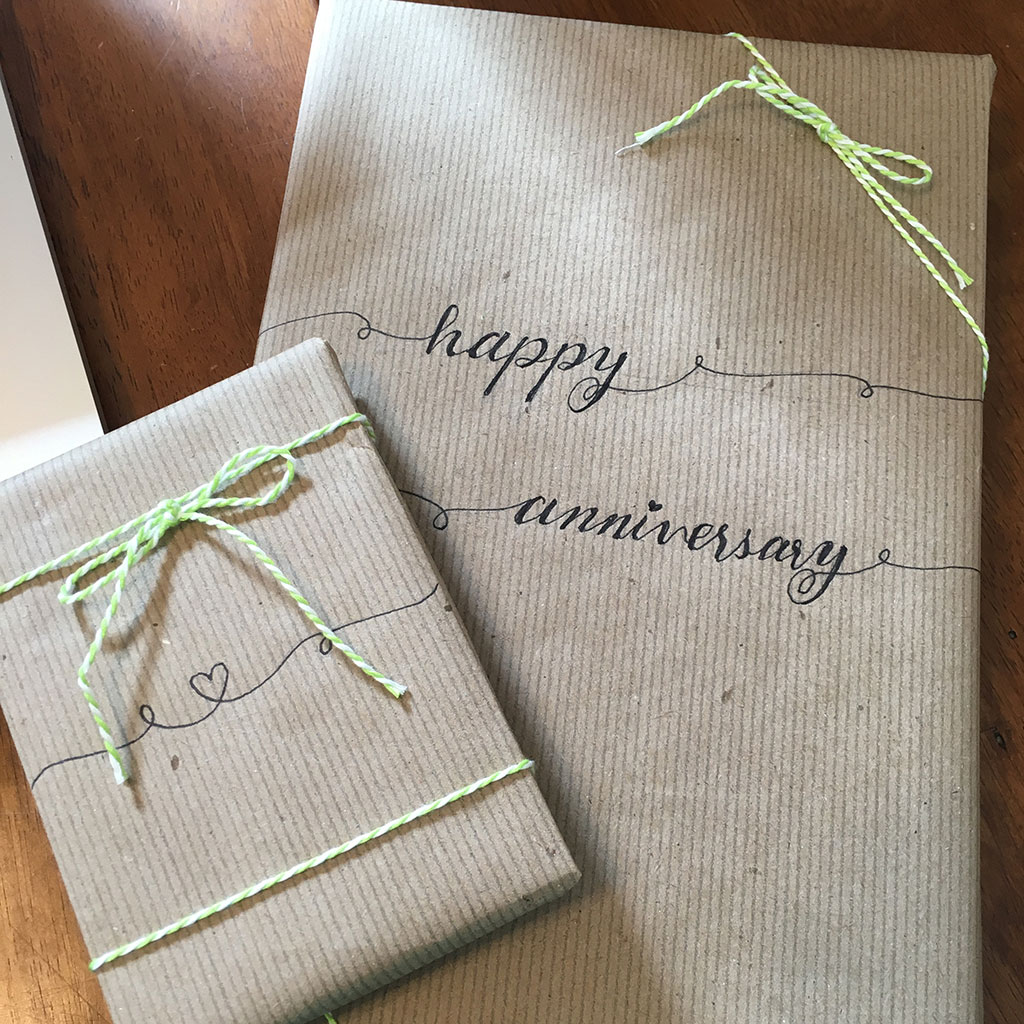 happy
anniversary